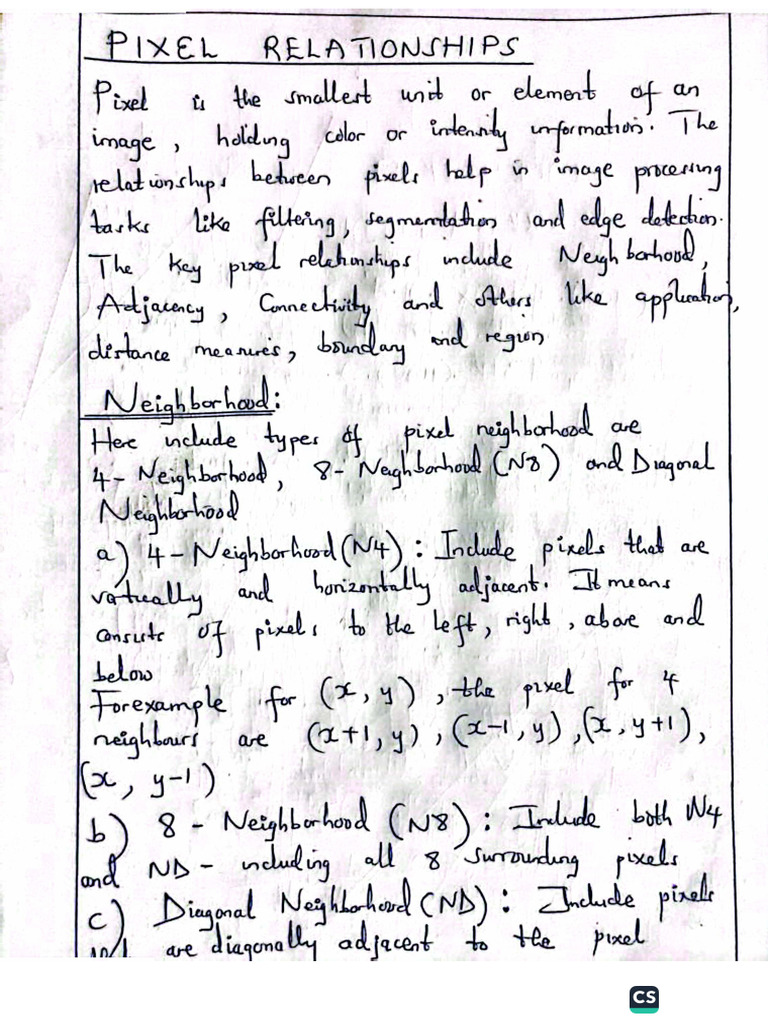 PIXEL RELATIONSHIPS
Pixel is the smallest unit or element of an
image, holding color or intensity information. The
relationships between pixels help in image processing
tasks like filtering, segmentation and edge detection.
The key pixel relationships include Neighborhood,
Adjacency, Connectivity and others like application,
distance measures, boundary and region
Neighborhood:
Here include types of pixel neighborhood are
4-Neighborhood, 8-Neighborhood (N8) and Diagonal
Neighborhood
a) 4-Neighborhood (N4): Include pixels that are
vertically and horizontally adjacent. It means
consists of pixels to the left, right, above and
below
Forexample for (x, y), the pixel for 4
neighbours are (x+1, y), (x-1, y), (x, y+1),
(x, y-1)
b) 8-Neighborhood (N8): Include both N4
and ND - including all 8 surrounding pixels
c) Diagonal Neighborhood (ND): Include pixels
are diagonally adjacent to the pixel
CS